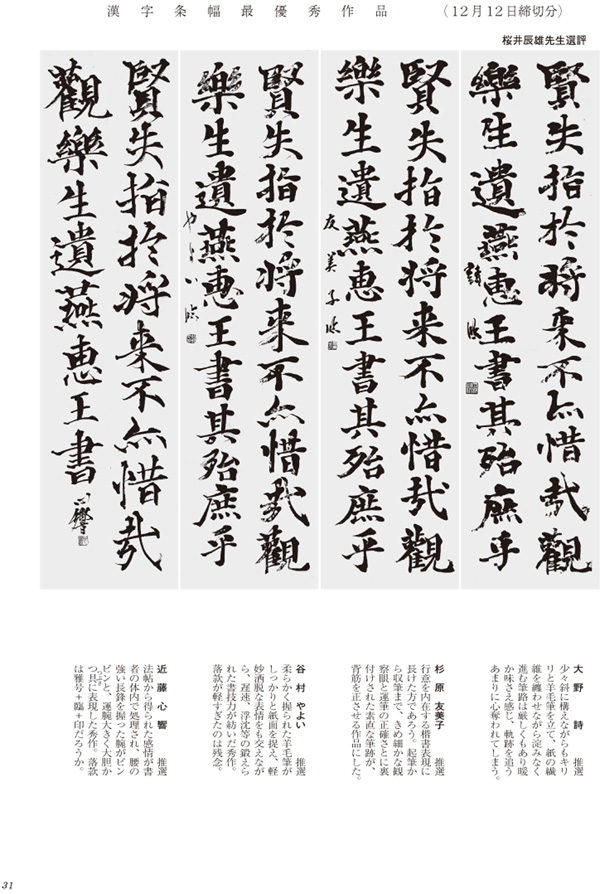 漢字条幅最優秀作品 （12月12日締切分）
桜井辰雄先生選評
賢失指於将来不亦惜哉觀
樂生遺燕惠王書其殆庶乎
詩臨
賢失指於将来不亦惜哉觀
樂生遺燕惠王書其殆庶乎
友美子臨
賢失指於将来不亦惜哉觀
樂生遺燕惠王書其殆庶乎
やよい臨
賢失指於将来不亦惜哉
觀樂生遺燕惠王書
大野 詩 推選
少々斜に構えながらもキリ
リと羊毛筆を立て、紙の繊
維を纏わせながら淀みなく
進む筆路は厳しくもあり暖
か味さえ感じ、軌跡を追う
あまりに心奪われてしまう。
杉原 友美子 推選
行意を内在する楷書表現に
長けた方であろう。起筆か
ら収筆まで、きめ細かな観
察眼と運筆の正確さとに裏
付けされた素直な筆跡が、
背筋を正させる作品にした。
谷村 やよい 推選
柔らかく握られた羊毛筆が
しっかりと紙面を捉え、軽
妙洒脱な表情をも交えなが
ら、遅速、浮沈等の鍛えら
れた書技力が紡いだ秀作。
落款が軽すぎたのは残念。
近藤 心響 推選
法帖から得られた感情が書
者の体内で処理され、腰の
強い長鋒を握った腕がビン
ビンと、運腕大きく大胆か
つ具に表現した秀作。落款
は雅号＋臨＋印だろうか。
31